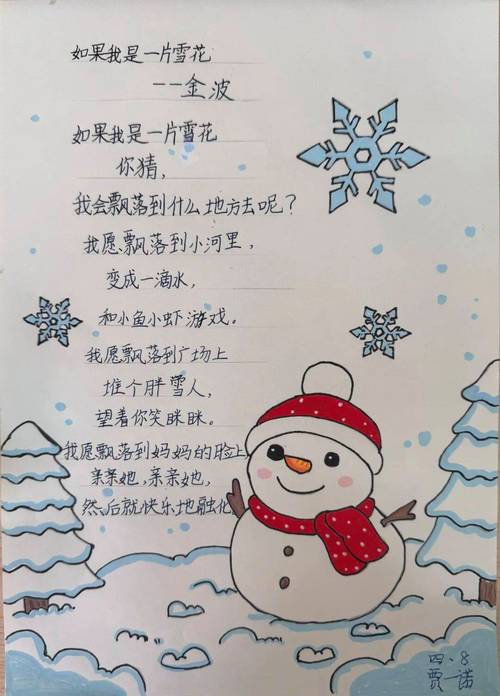 如果我是一片雪花
--金波
如果我是一片雪花
你猜,
我会飘落到什么地方去呢?
我愿飘落到小河里,
变成一滴水,
和小鱼小虾游戏。
我愿飘落到广场上
堆个胖雪人,
望着你笑眯眯。
我愿飘落到妈妈的脸上,
亲亲她,亲亲她,
然后就快乐地融化
四.8
贾一诺